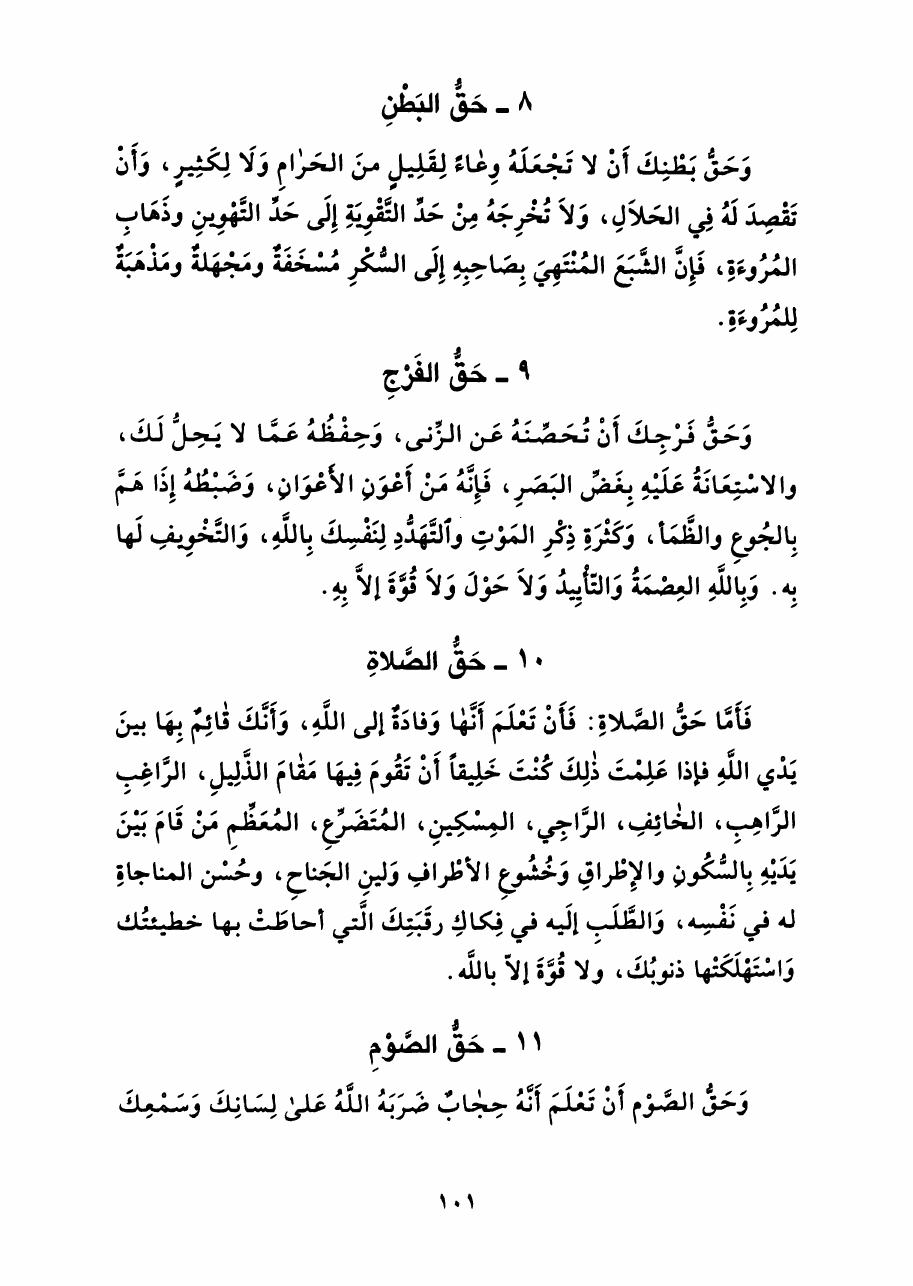 ٨ ـ حَقُّ البَطْنِ
وَحَقُّ بَطْنِكَ أَنْ لا تَجْعَلَهُ وِعٰاءً لِقَلِيلٍ منَ الحَرٰامِ وَلَا لِكَثِيرٍ، وَأَنْ
تَقْصِدَ لَهُ فِي الحَلاَلِ، وَلاَ تُخْرِجَهُ مِنْ حَدِّ التَّقْوِيَةِ إِلَى حَدِّ التَّهْوِينِ وذَهَابِ
المُرُوءَةِ، فَإِنَّ الشَّبَعَ المُنْتَهِيَ بِصَاحِبِهِ إِلَى السُّكْرِ مُسْخَفَةٌ ومَجْهَلةٌ ومَذْهَبَةٌ
لِلمُرُوءَةِ.
٩ ـ حَقُّ الفَرْجِ
وَحَقُّ فَرْجِكَ أَنْ تُحَصِّنَهُ عَنِ الزِّنى، وَحِفْظُهُ عَمَّا لا يَحِلُّ لَكَ،
والاسْتِعَانَةُ عَلَيْهِ بِغَضِّ البَصَرِ، فَإِنَّهُ مَنْ أَعْوَنِ الأَعْوَانِ، وَضَبْطُهُ إِذَا هَمَّ
بِالجُوعِ والظَّمَأ، وَكَثْرَةِ ذِكْرِ المَوْتِ وٱلتَّهَدُّدِ لِنَفْسِكَ بِاللَّهِ، وَالتَّخْوِيفِ لَها
بِه. وَبِاللَّهِ العِصْمَةُ وَالتّأْيِيدُ وَلاَ حَوْلَ وَلاَ قُوَّةَ إلاَّ بِهِ.
١٠ ـ حَقُّ الصَّلاةِ
فَأَمَّا حَقُّ الصَّلاةِ: فَأَنْ تَعْلَمَ أَنَّهٰا وَفادَةٌ إلى اللَّهِ، وَأَنَّكَ قٰائِمٌ بِهَا بينَ
يَدْي اللَّهِ فإذا عَلِمْتَ ذٰلِكَ كُنْتَ خَلِيقاً أَنْ تَقُومَ فِيهَا مَقٰامَ الذَّلِيلِ، الرَّاغِبِ
الرَّاهِبِ، الخٰائِفِ، الرَّاجِي، المِسْكِينِ، المُتَضَرِّعِ، المُعَظِّمِ مَنْ قَامَ بَيْنَ
يَدَيْهِ بِالسُّكُونِ والإِطْراقِ وَخُشُوعِ الأطْرافِ وَلينِ الجَناحِ، وحُسْنِ المناجاةِ
له في نَفْسِه، وَالطَّلَبِ إلَيه في فِكاكِ رقَبَتِكَ الَّتي أحاطَتْ بها خطيئتُك
وَاسْتَهْلَكَتْها ذنوبُكَ، ولا قُوَّةَ إلاّ باللَّه.
١١ ـ حَقُّ الصَّوْمِ
وَحَقُّ الصَّوْمِ أَنْ تَعْلَمَ أَنَّهُ حِجٰابٌ ضَرَبَهُ اللَّهُ عَلىٰ لِسَانِكَ وَسَمْعِكَ
١٠١